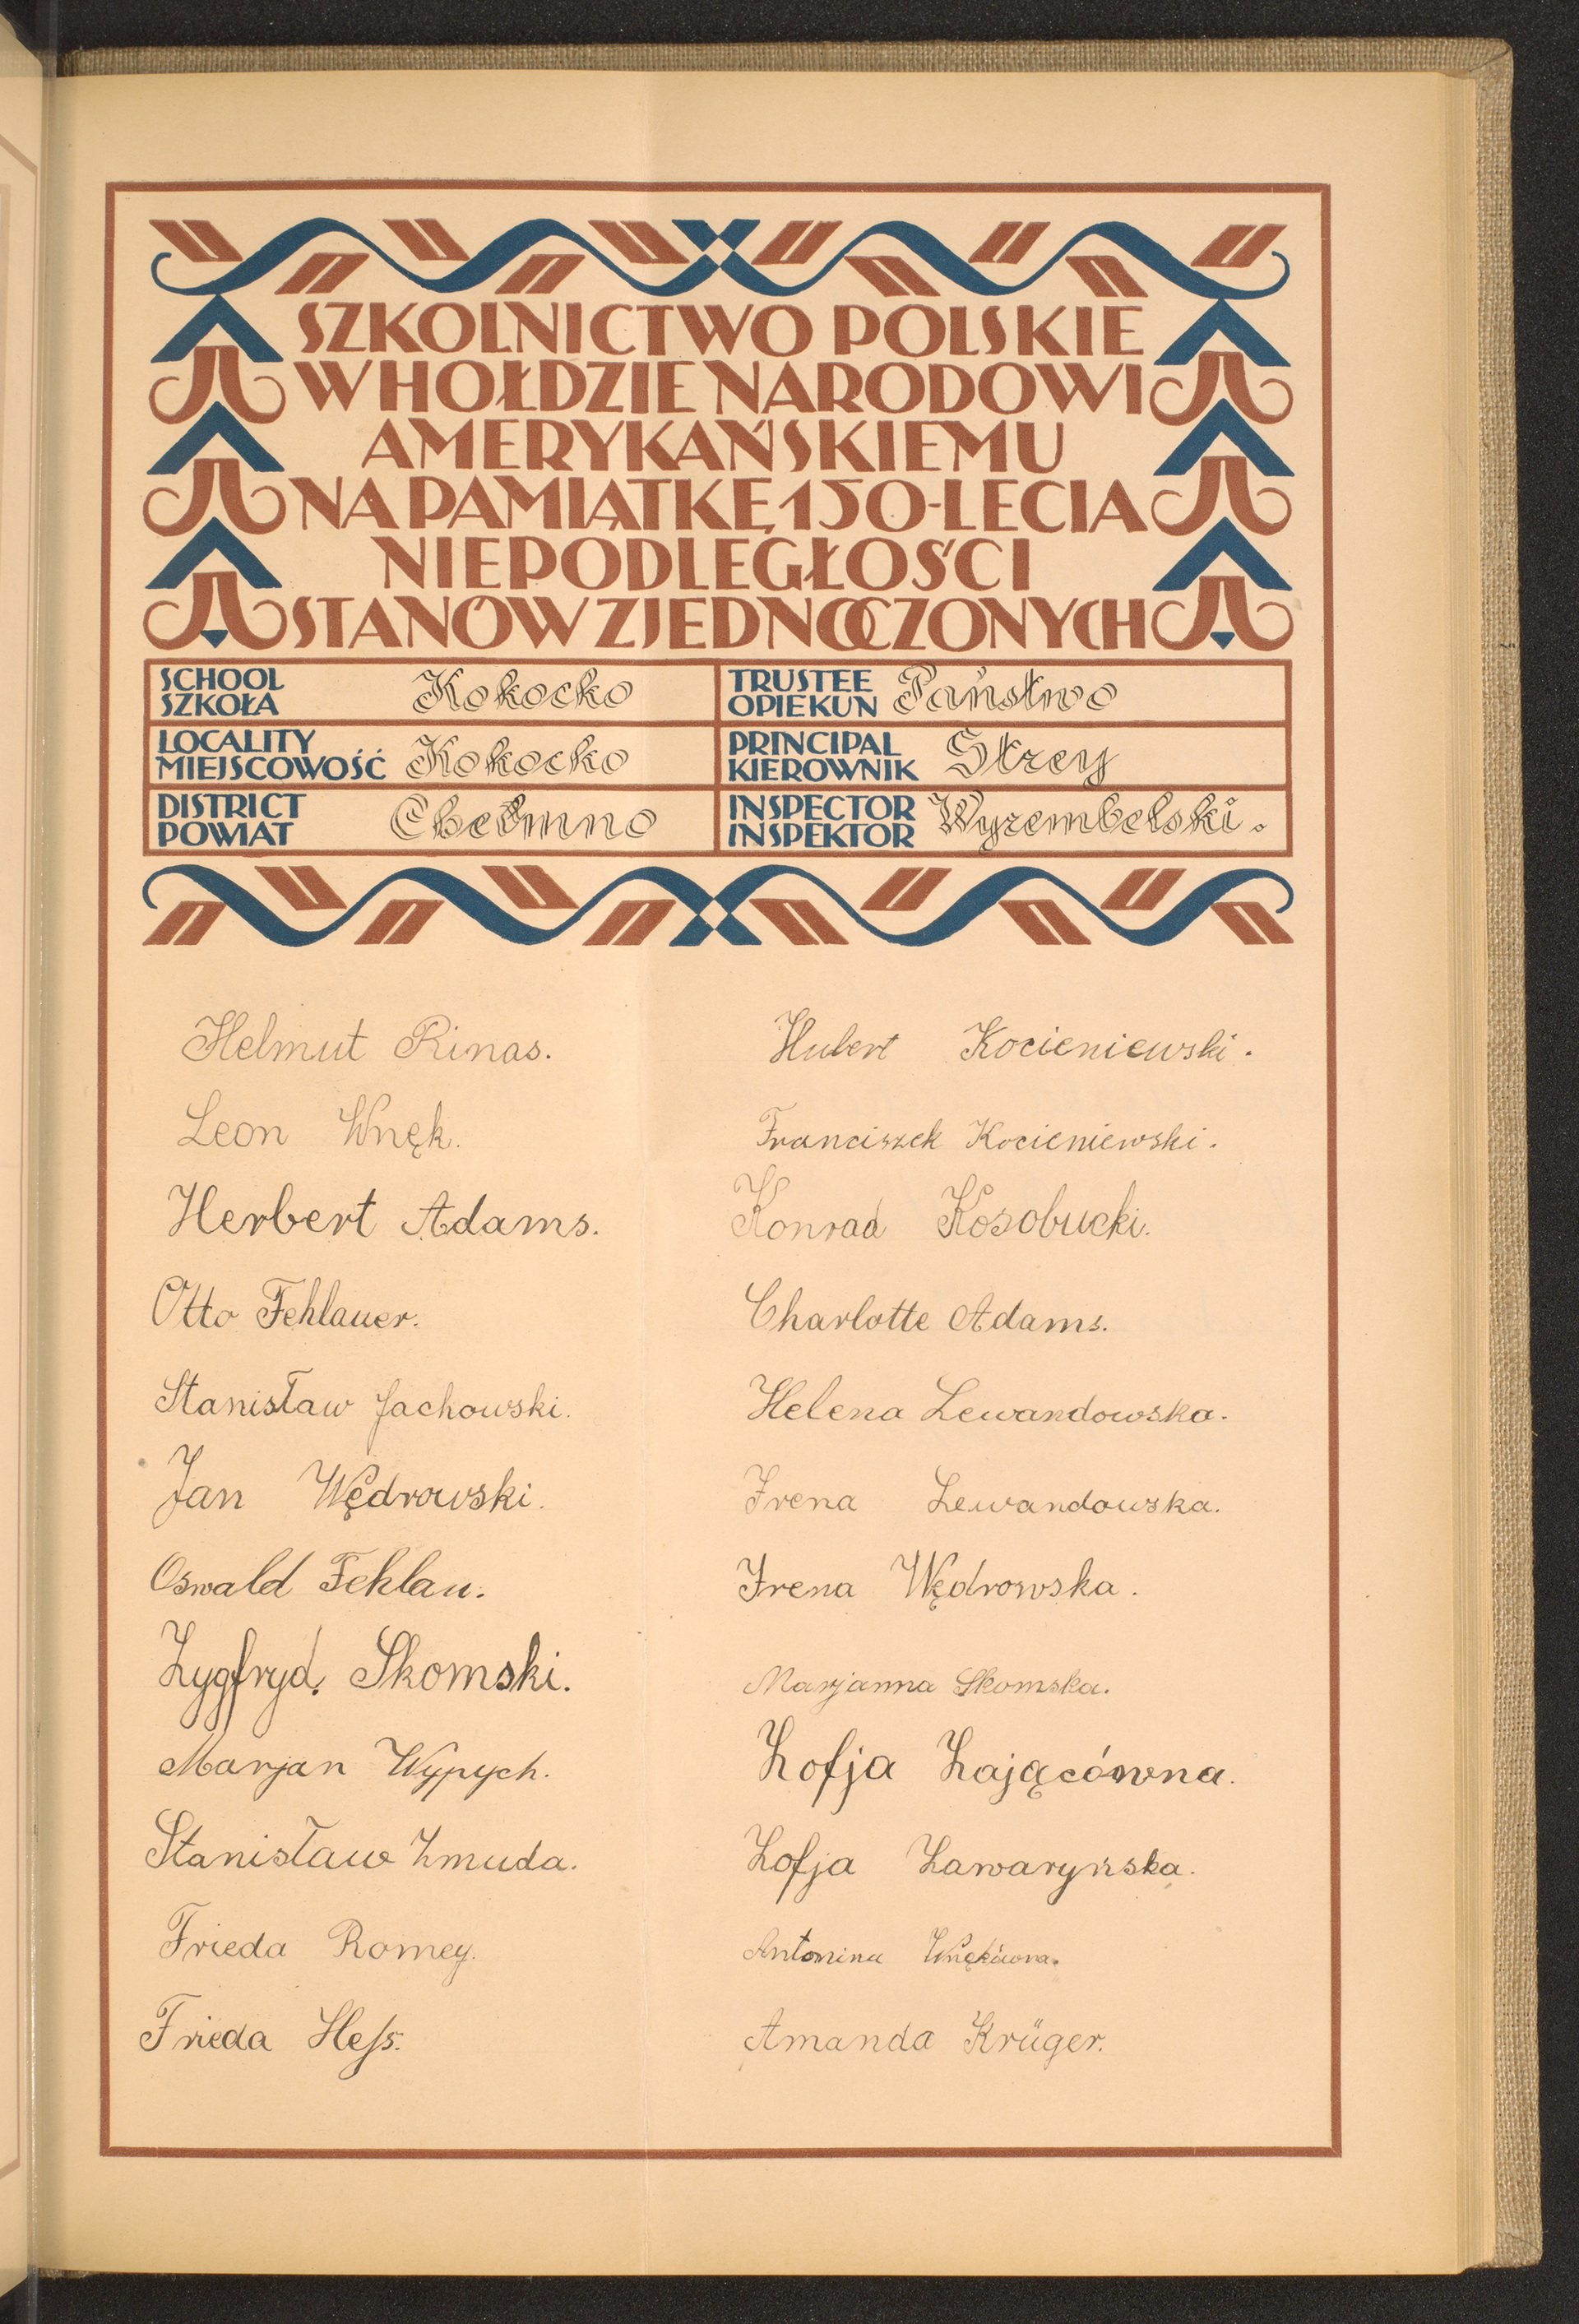 SZKOLNICTWO POLSKIE
W HOŁDZIE NARODOWI
AMERYKAŃSKIEMU
NA PAMIĄTKĘ 150-LECIA
NIEPODLEGŁOŚCI
STANÓW ZJEDNOCZONYCH
SCHOOL
SZKOŁA
Kokocko
TRUSTEE
OPIEKUN
Państwo
LOCALITY
MIEJSCOWOŚĆ
Kokocko
PRINCIPAL
KIEROWNIK
Strey
DISTRICT
POWIAT
Chełmno
INSPECTOR
INSPEKTOR
Wyrembelski.
Helmut Rinas.
Leon Wnęk.
Herbert Adams.
Otto Fehlauer.
Stanisław Jachowski.
Jan Wędrowski.
Oswald Fehlau.
Zygfryd. Skomski.
Marjan Wypych.
Stanisław Zmuda.
Frieda Romey.
Frieda Heſs.
Hubert Kocieniewski.
Franciszek Kocieniewski.
Konrad Kosobucki.
Charlotte Adams.
Helena Lewandowska.
Irena Lewandowska.
Irena Wędrowska.
Marjanna Skomska.
Zofja Zającówna.
Zofja Zawaryńska.
Antonina Wnękówna.
Amanda Krüger.